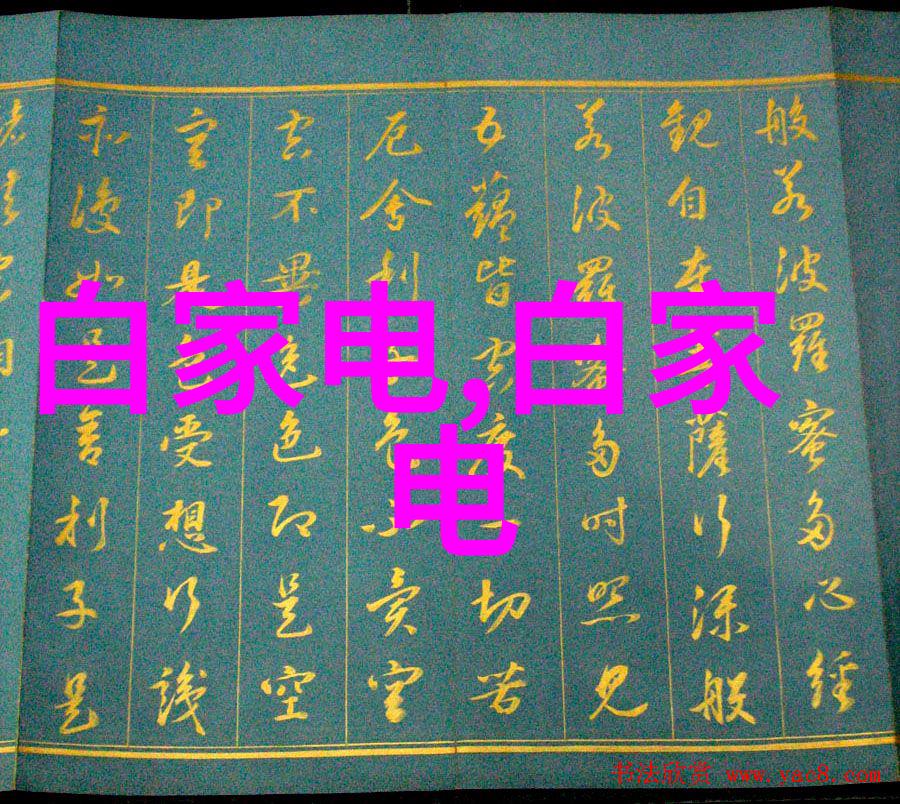 般若波羅蜜多心經
觀自在薩行深般
若波羅蜜多時照見
五蘊皆空度一切苦
厄舍利色不異空
空不異色色即是空
空即是色受想行識
亦復如是舍利子是
白家电,白家
电
书法欣赏 www.yac8.com